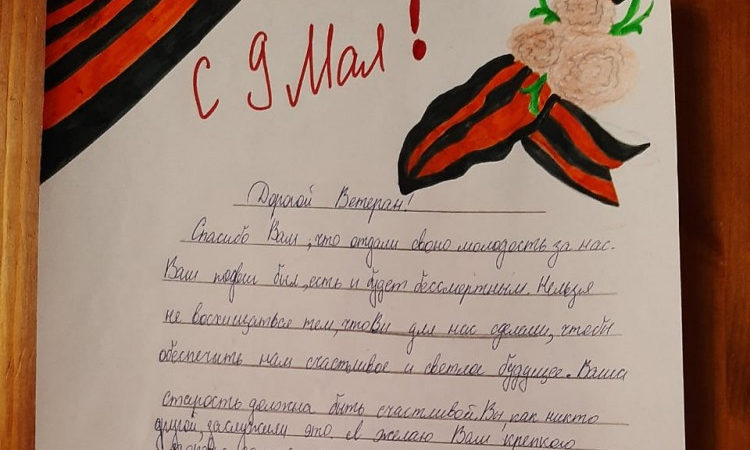 С 9 Мая!
Дорогой Ветеран!
Спасибо Вам, что отдали свою молодость за нас.
Ваш подвиг был, есть и будет бессмертным. Нельзя
не восхищаться тем, что Вы для нас сделали, чтобы
обеспечить нам счастливое и светлое будущее. Ваша
старость должна быть счастливой. Вы, как никто
другой, заслужили это. Я желаю Вам крепкого